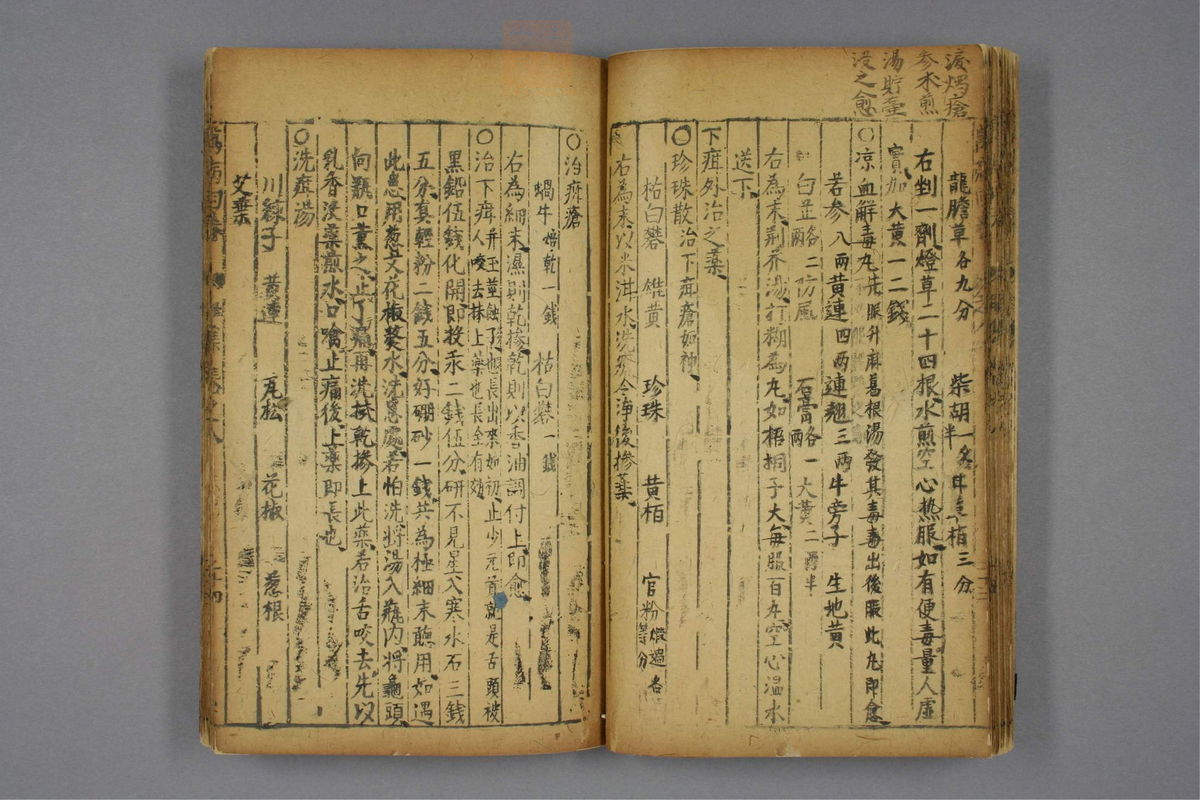 湯貯壼
没之愈
龍膽草各九分 柴胡一名半 栢三分
右剉一劑燈草二十四根水煎空心热服如有便毒量人虛
實加大黄一二錢
〇凉血解毒丸先服升麻葛根湯發其毒毒出後服此丸即愈
苦参八两 黄連四两 連翹三两 牛旁子 生地黄
白芷各二两 防風 石膏各一两 大黄二两半
右為末荆芥湯打糊為丸如梧桐子大每服百丸空心温水
送下
下疳外治之藥
〇珍珠散治下疳瘡如神
枯白礬 雄黄 珍珠 黄栢 官粉煅過各等分
右為末以米泔水洗瘡令净後摻藥
〇治疳瘡
蝸牛焙乾一錢 枯白礬一錢
右為細末濕則乾摻乾則以香油調付上即愈
〇治下疳并玉莖蝕了也長出來如初止少元首就是舌頭被人咬去抹上藥也長全有効
黑鉛伍錢化開即投汞二錢伍分研不見星入寒水石三錢
五分真輕粉二錢五分好硼砂一錢共為極細末聽用如遇
此患用葱艾花椒熬水洗患處若怕洗將湯入瓶内將龜頭
向瓶口熏之止了痛再洗拭乾摻上此藥若治舌咬去先以
乳香没藥煎水口噙止痛後上藥即長也
〇洗疳湯
川練子 黄連 瓦松 花椒 葱根
艾葉